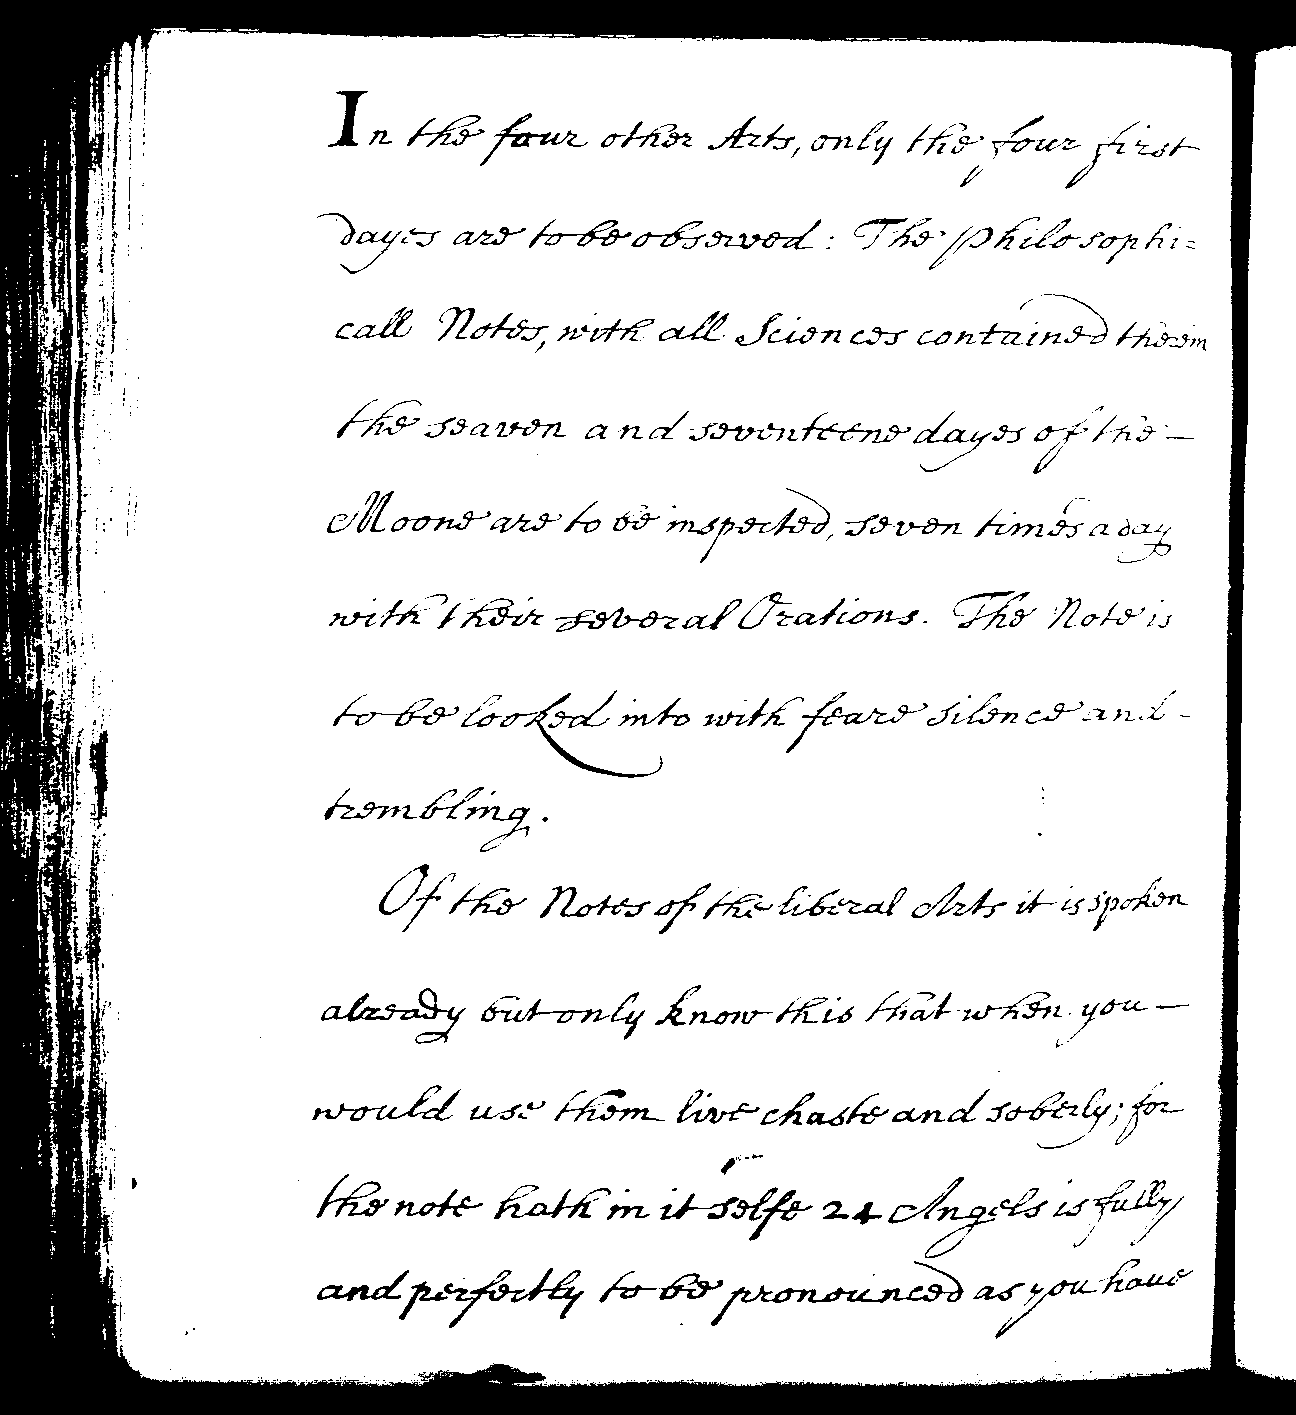 In the four other Arts, only the four first
dayes are to be observed: The Philosophi=
call Notes, with all Sciences contained therein
the seaven and seventeene dayes of the -
Moone are to be inspected, seven times a day
with their several Orations. The Note is
to be looked into with feare silence and -
trembling.
Of the Notes of the liberal Arts it is spoken
already but only know this that when you -
would use them live chaste and soberly; for
the note hath in it selfe 24 Angels is fully
and perfectly to be pronounced as you have